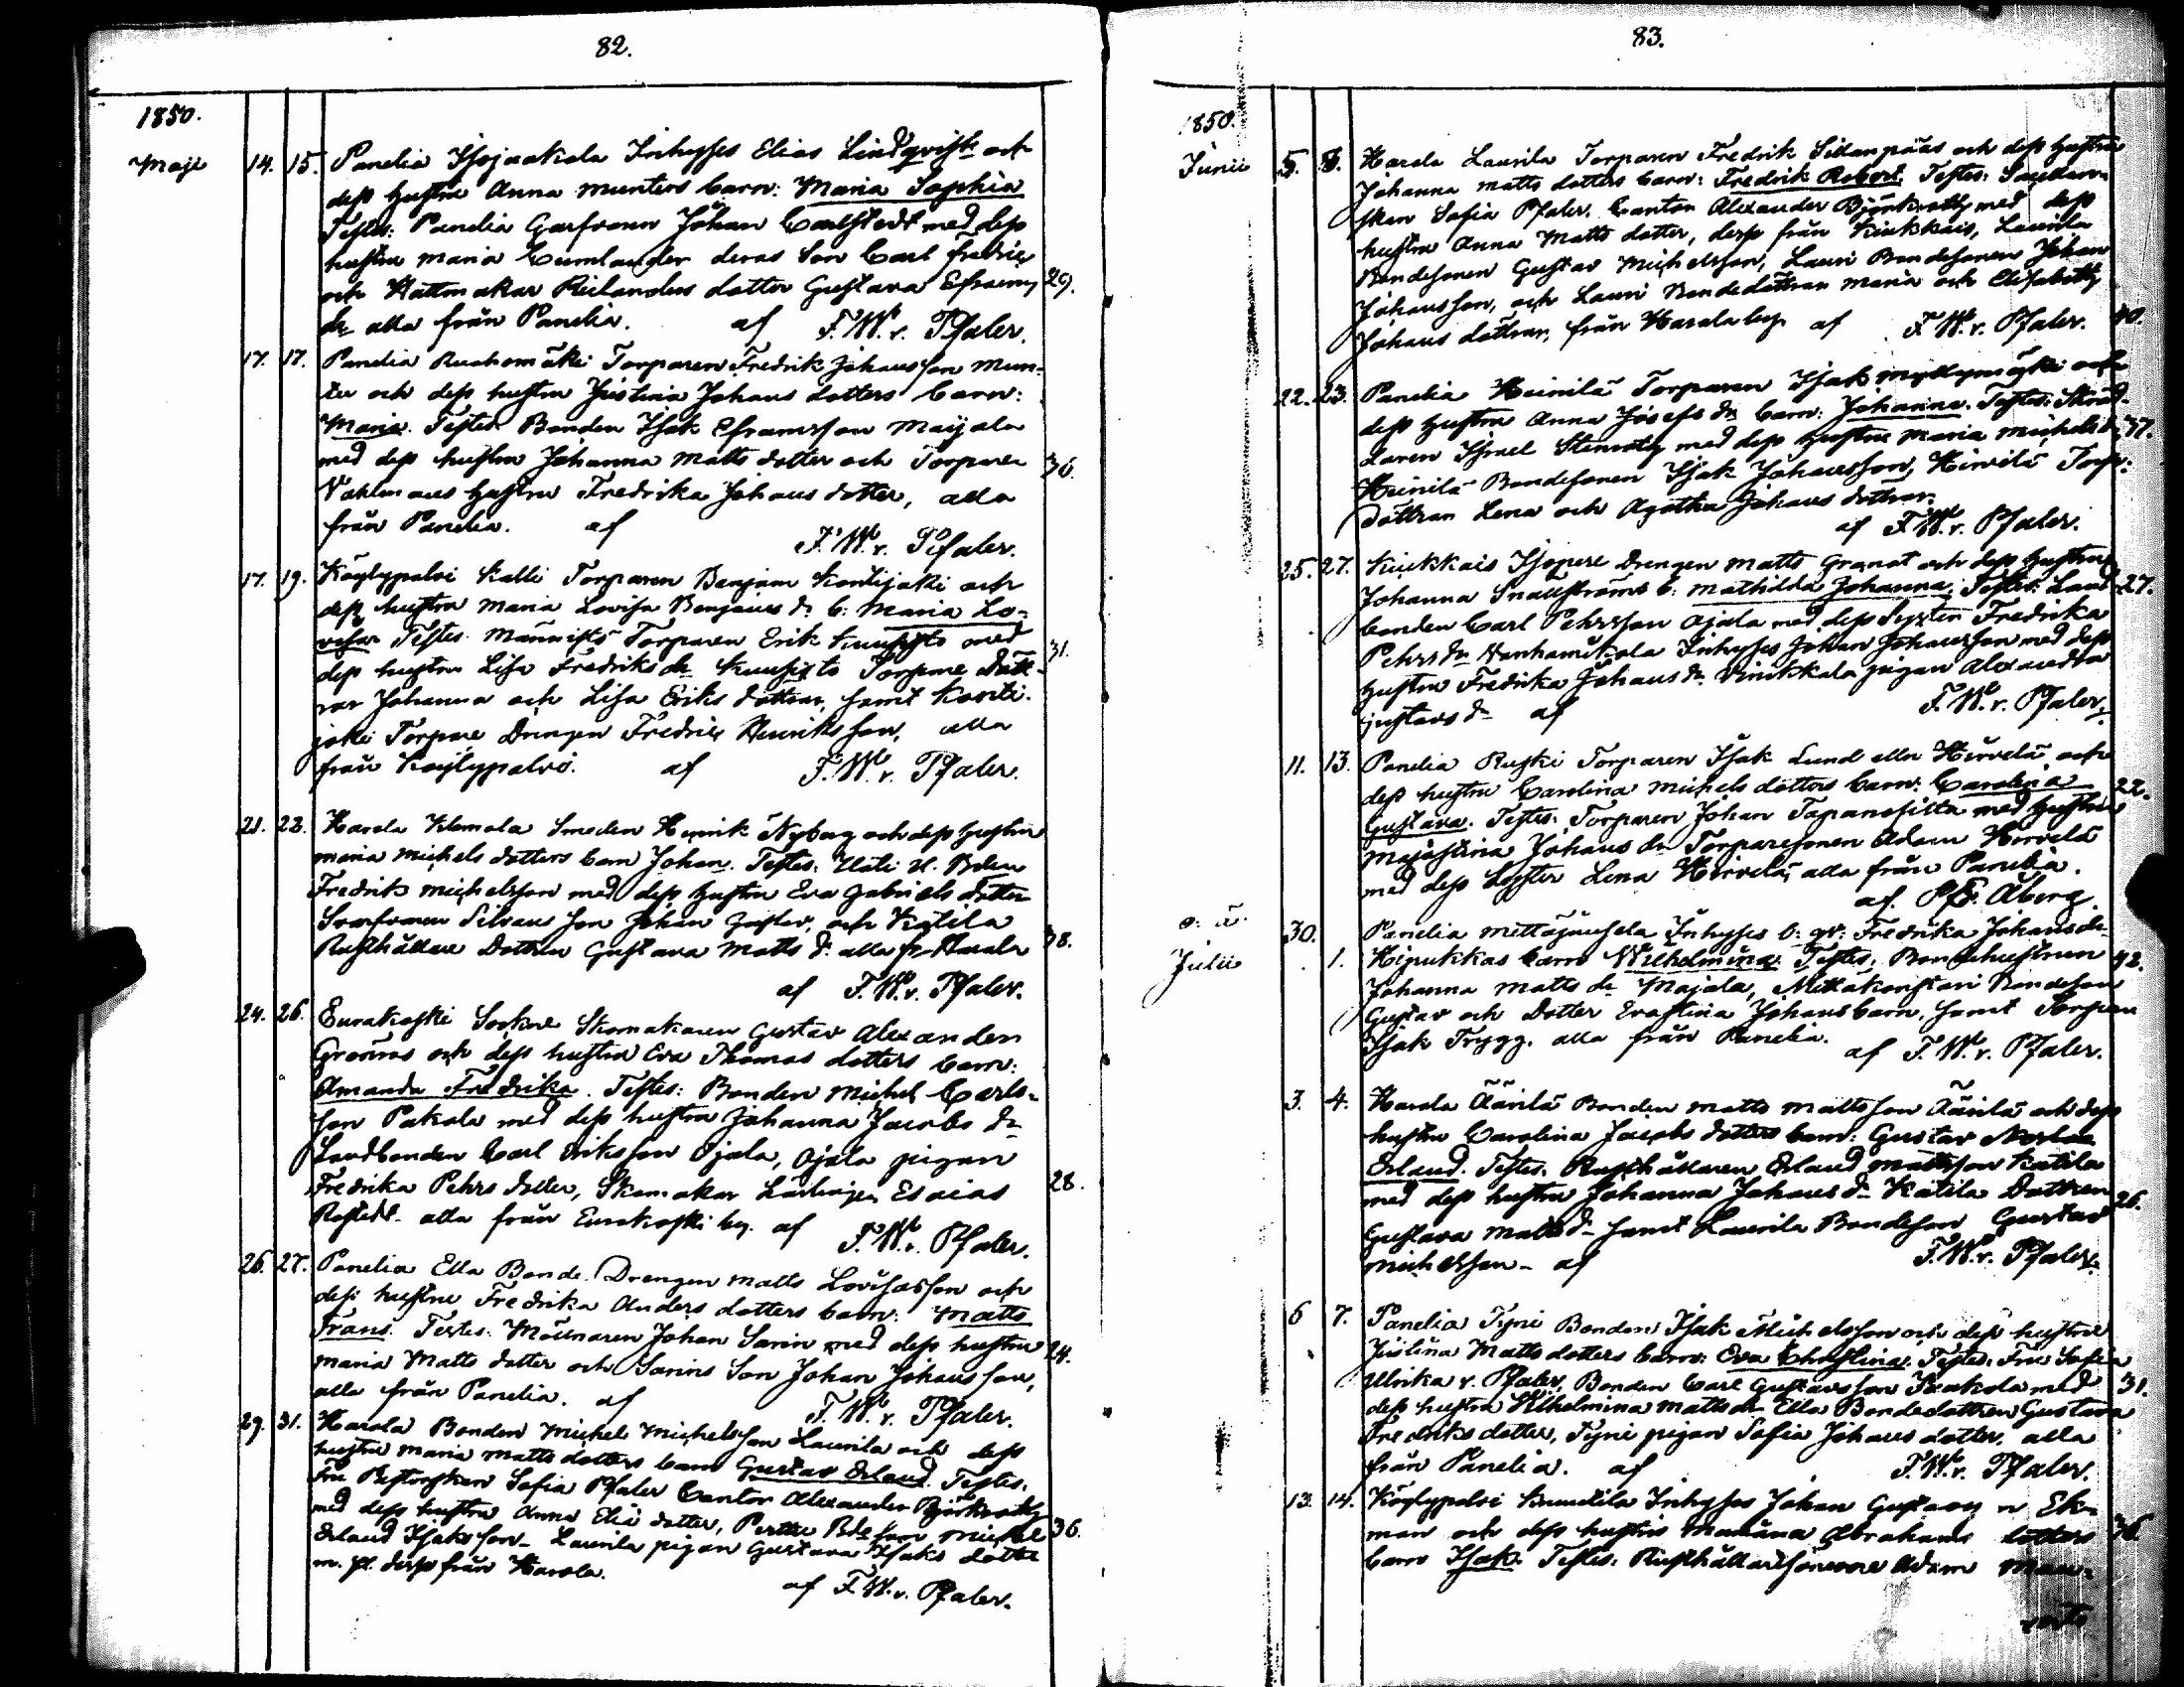 82.
1850.
Maji 14. 15. Panelia Isojaakola Inhyses Elias Lindqvist och
dess hustru Anna Munters barn: Maria Sophia
Testes: Panelia Garfvaren Johan Carlstedt med dess
hustru Maria Cumlander deras Son Carl Fredric
och Hattmakar Reilanders dotter Gustava Efraims 29.
dr alla från Panelia. af F.W. v. Pfaler.
17. 17. Panelia Ruohomäki Torparen Fredrik Johansson Mun-
ter och dess hustru Justina Johans dotters barn:
Maria. Testes. Bonden Isak Efraimsson Maijala
med dess hustru Johanna Matts dotter och Torparen 36.
Vahlmans hustru Fredrika Johans dotter, alla
från Panelia. af
F.W. v. Pfaler.
17. 19. Köylypolvi Kalli Torparen Benjam Kontijokki och
dess hustru Maria Lovisa Benjams dr b: Maria Lo-
visa Testes. Männistö Torparen Erik Kuusisto med
dess hustru Lisa Fredriks dr Kuusisto Torpare Dött- 31.
rar Johanna och Lisa Eriks döttrar, samt Konti-
joki Torpare Drengen Fredric Henriksson, alla
från Köylypolvi. af F.W. v. Pfaler.
21. 22. Harola Klemola Smeden Henrik Nyberg och dess hustru
Maria Michels dotters barn Johan. Testes: Uoti
Fredrik Michelsson med dess hustru Eva Gabriels dotter
Svarfvaren Silvan Son Johan Gustav, och Katila
Rusthållare Dottren Gustava Matts dr alla fr. Harola 38.
af F.W. v. Pfaler.
24. 26. Eurakoski Sockne Skomakaren Gustav Alexander
Grönroos och dess hustru Eva Thomas dotters barn:
Amanda Fredrika. Testes: Bonden Michel Carls-
son Pakola med dess hustru Johanna Jacobs dr
Landbonden Carl Eriksson Ojala, Ojala pigan
Fredrika Pehrs dotter, Skomakar Lärlingen Esaias 28.
Rostedt alla från Eurakoski by. af F.W. v. Pfaler.
26. 27. Panelia Ella Bonde Drengen Matts Lovisasson och
dess hustru Fredrika Anders dotters barn: Matts
Frans. Testes: Möllnaren Johan Sarin med dess hustru 24.
Maria Matts dotter och Sarins Son Johan Johansson,
alla från Panelia. af F.W. v. Pfaler.
29. 31. Harola Bonden Michel Michelsson Laurila och dess
hustru Maria Matts dotters barn Gustav Erland. Testes.
Fru Pastorskan Sofia Pfaler Cantor Alexander Björkroth
med dess hustru Anna Elia dotter, Perttu Bde son Michel 36.
Erland Isaksson. Laurila pigan Gustava Isaks dotter
m. fl. derss från Harola.
af F.W. v. Pfaler.
83.
1850.
Junii 5. 8. Harola Laurila Torparen Fredrik Sillanpääs och dess hustru
Johanna Matts dotters barn: Fredrik Robert. Testes:
Sofia Pfaler. Cantor Alexander Björkroth med dess
hustru Anna Matts dotter, derss från Kiukkais, Laurila
Bondesonen Gustav Michelsson, Lauri Bondesonen Johan
Johansson, och Lauri Bondedöttran Maria och Elisabeth
Johans döttrar, från Harola by. af F.W. v. Pfaler. 40.
22. 23. Panelia Heinilä Torparen Isak Myllymäki och
dess hustru Anna Josefs dr barn: Johanna. Testes: Skräd-
daren Israel Stenroth med dess hustru Maria Michels dr 37.
Heinilä Bondesonen Isak Johansson, Hirvilä Torp.
döttran Lena och Agatha Johans döttrar.
af F.W. v. Pfaler.
25. 27. Kiukkais Isopere Drengen Matts Granat och dess hustru
Johanna Snällströms b: Mathilda Johanna. Testes: Land- 27.
bonden Carl Pehrsson Ojala med dess Syster Fredrika
Pehrs dr Inhyses Johan Johansson med dess
hustru Fredrika Johans dr. Vinikkala pigan Alexandra
Gustavs dr af F.W. v. Pfaler.
11. 13. Panelia Ruski Torparen Isak Lund eller Hirvelä och
dess hustru Carolina Michels dotters barn: Carolina 22.
Gustava. Testes: Torparen Johan Tapanisilta med hustru
Majastina Johans dr Torparesonen Adam Hirvelä
med dess Syster Lena Hirvelä, alla från Panelia.
af. Åberg.
o. ä. 30. Panelia Mellajuusela Inhyses b: qv: Fredrika Johans dr
Julii 1. Hipukkas barn Wilhelmina. Testes: Bondehustrun 42.
Johanna Matts dr Majala, Mellakonstari Bondeson
Gustav och Dotter Evastina Johans barn, samt Torparen
Isak Trygg. alla från Panelia.
af F.W. v. Pfaler.
3. 4. Harola Äärilä Bonden Matts Mattsson Äärilä och dess
hustru Carolina Jacobs dotters barn: Gustav
Erland. Testes: Rusthållaren Erland Mattsson Katila
med dess hustru Johanna Johans dr Katila Dottren 26.
Gustava Matts dr samt Laurila Bondeson Gustav
Michelsson. af F.W. v. Pfaler.
6 7. Panelia Tyni Bonden Isak Michelsson och dess hustru
Justina Matts dotters barn: Eva Christina. Testes: Fru Sofia
Ulrika v. Pfaler, Bonden Carl Gustavsson Jaakola med 31.
dess hustru Wilhelmina Matts dr Ella Bondedottren Gustava
Fredriks dotter, Tyni pigan Sofia Johans dotter, alla
från Panelia. af F.W. v. Pfaler.
13. 14. Köylypolvi Inhyses Johan Gustavsson Ek-
man och dess hustru Mariana Abrahams dotters 36.
barn Isak. Testes: Rusthållaresonen Adam Man-